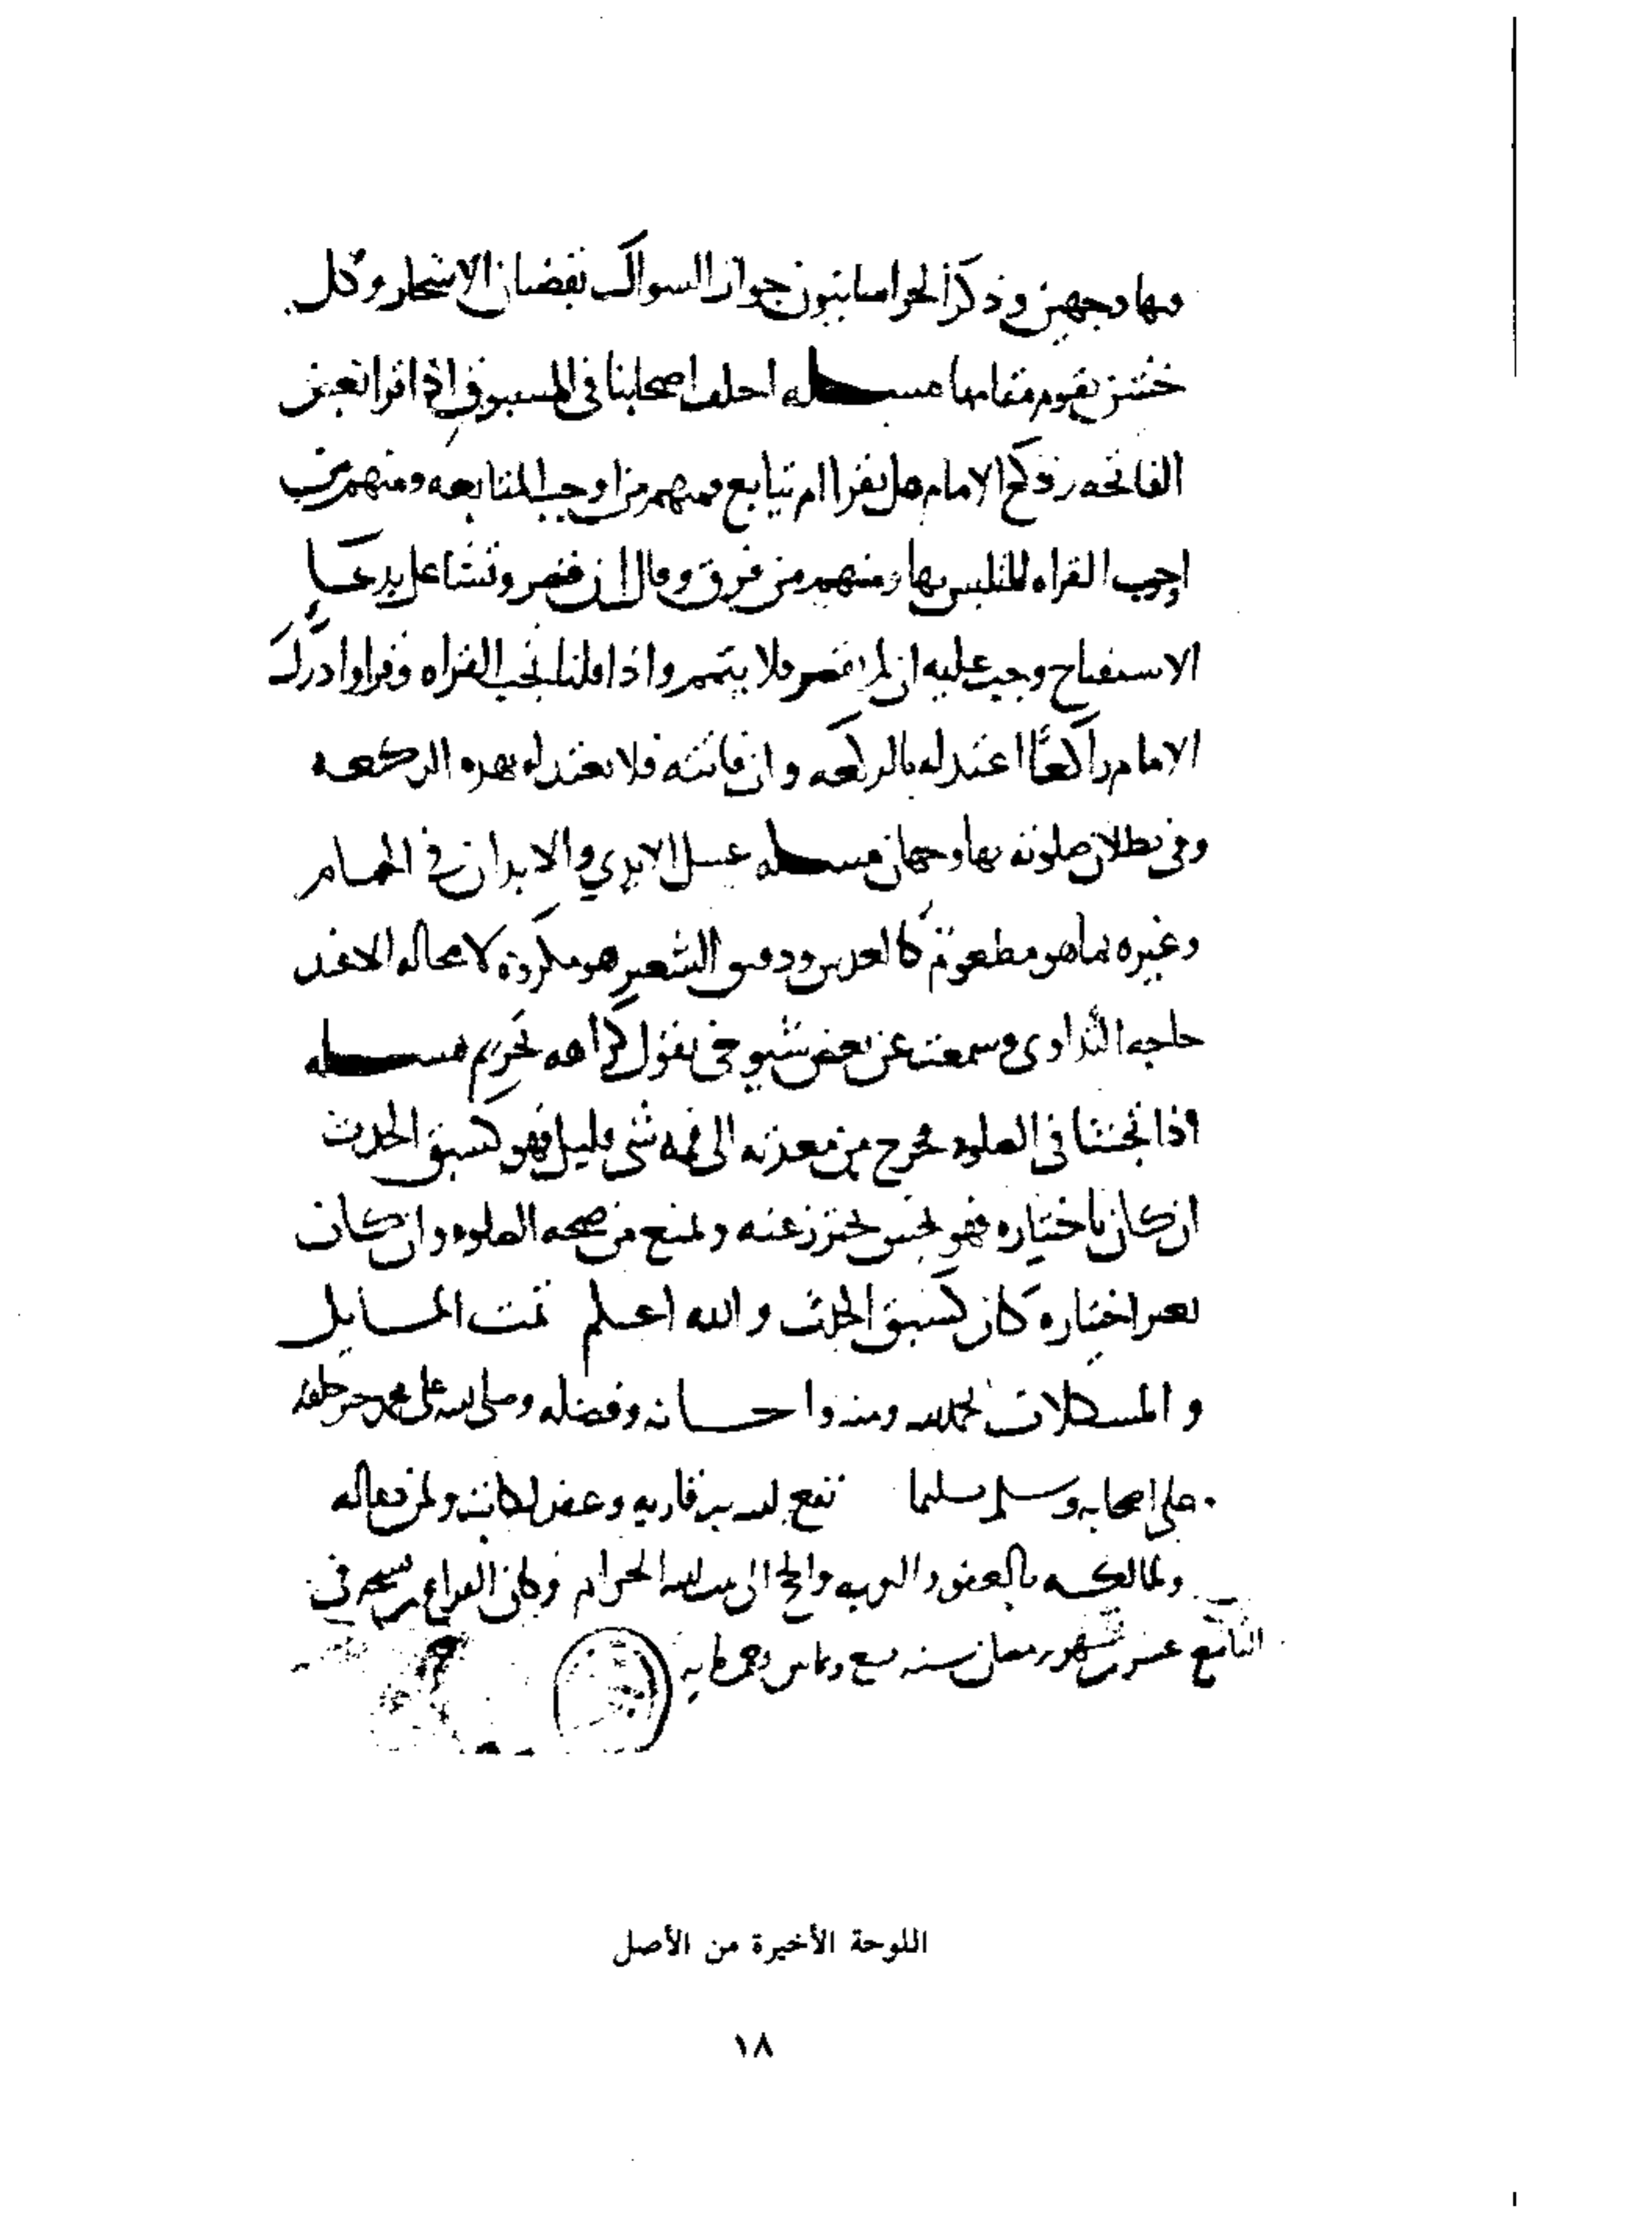 فيها وجهين وذكر الخراسانيون جواز السواك بقضبان الاشجار وكل
خشن يقوم مقامها مسله اختلف اصحابنا في المسبوق اذا قرا بعض
الفاتحه وركع الامام هل يقرا ام يتابع فمنهم من اوجب المتابعه ومنهم من
اوجب القراه للتلبس بها ومنهم من فرق وقال ان قصر وتشاغل بدعا
الاستفتاح وجب عليه ان لم يقصر فلا يتمم واذا قلنا تجب القراه وقرا وادرك
الامام راكعًا اعتد له بالركعه وان فاتته فلا يعتد له بهذه الركعه
وفي بطلان صلوته بها وجهان مسله غسل الايدي والابدان في الحمام
وغيره بما هو مطعوم كالعدس ودقيق الشعير هو مكروه لا محاله الا عند
حاجه التداوي وسمعت عن بعض شيوخي يقول كراهه تحريم مسله
اذا تجشا في الصلوه فخرج من معدته الى فمه شي قليل فهو كسبق الحدث
ان كان باختياره فهو نجس يحترز عنه ويمنع من صحه الصلوه وان كان
بغير اختياره كان كسبق الحدث والله اعلم تمت المسايل
والمشكلات بحمد الله ومنه واحسانه وفضله وصلى الله على محمد خير خلقه
وعلى اصحابه وسلم تسليما نفع الله به قاريه وغفر لكاتبه ولمن دعا له
ولمالكه بالعفو والتوبه والحج الى بيت الله الحرام وكان الفراغ من نسخه في
التاسع عشر من شهر رمضان سنه سبع وثمانين وخمسمايه
اللوحة الأخيرة من الأصل
١٨